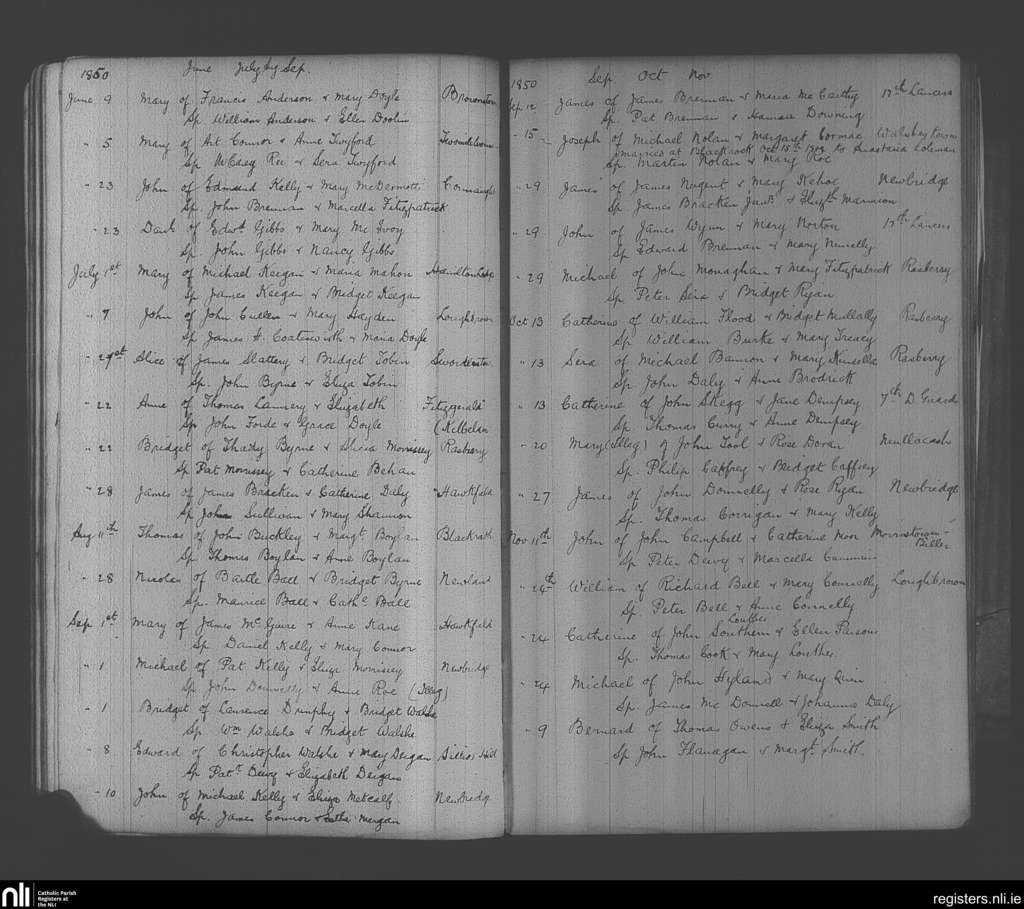 1850 June July Aug Sep.
June 9 Mary of Francis Anderson & Mary Doyle
Sp William Anderson & Ellen Doolin
" 5 Mary of Art Connor & Anne Twyford
Sp Roe & Sera Twyford
" 23 John of Edmund Kelly & Mary McDermott Connaught
Sp. John Brennan & Marcella Fitzpatrick
" 23 of Edwd Gibbs & Mary Mc Evoy
Sp John Gibbs & Nancy Gibbs
July 1st Mary of Michael Keegan & Maria Mahon
Sp James Keegan & Bridget Keegan
" 7 John of John Cullen & Mary Hayden Loughbrown
Sp James H. Coatsworth & Maria Doyle
Alice of James Slattery & Bridget Tobin
Sp. John Byrne & Eliza Tobin
" 22 Anne of Thomas Lannery & Elizabeth Fitzgerald
Sp John Forde & Grace Doyle (Kilbelan
" 22 Bridget of Thady Byrne & Morrissey Rasberry
Sp Pat Morrissey & Catherine Behan
" 28 James of James Bracken & Catherine Daly Hawkfield
Sp John Sullivan & Mary Shannon
Aug 11th Thomas of John Buckley & Margt Boylan Blackrath
Sp Thomas Boylan & Anne Boylan
" 28 Nicolas of Bartle Ball & Bridget Byrne Newland
Sp. Maurice Ball & Cathe Ball
Sep 1st Mary of James McGuire & Anne Kane Hawkfield
Sp Daniel Kelly & Mary Connor
" 1 Michael of Pat Kelly & Eliza Morrissey Newbridge
Sp John Donnelly & Anne Roe (Illeg)
" 1 Bridget of Laurence Dunphy & Bridget Walshe
Sp. Wm Walshe & Bridget Walshe
" 8 Edward of Christopher Walshe & Mary Deegan Hill
Sp Patk Deevy & Elizabeth Deegan
" 10 John of Michael Kelly & Eliza Metcalf Newbridge
Sp. James Connor & Mergan
1850 Sep Oct Nov
Sep 12 James of James Brennan & Maria Mc Carthy 17th Lancers
Sp. Pat Brennan & Hannah Downing
" 15 Joseph of Michael Nolan & Margaret Cormac Walshestown
married at Blackrock Oct 15th to Anastasia Coleman
Sp. Martin Nolan & Mary Roe
" 29 James of James Nugent & Mary Kehoe Newbridge
Sp James Bracken Junr & Elizth Marmion
" 29 John of James Wynn & Mary Norton 17th Lancers
Sp Edward Brennan & Mary Nunelly
" 29 Michael of John Monaghan & Mary Fitzpatrick Rasberry
Sp Peter Sera & Bridget Ryan
Oct 13 Catherine of William Flood & Bridget Mullally
Sp William Burke & Mary Treacy
" 13 Sera of Michael Bannon & Mary Kinsella Rasberry
Sp John Daly & Anne Brodrick
" 13 Catherine of John Skegg & Jane Dempsey 7th D. Guards
Sp Thomas Curry & Anne Dempsey
" 20 Mary (Illeg) of John Tool & Rose Doran Mullacash
Sp. Philip Caffrey & Bridget Caffrey
" 27 James of John Donnelly & Rose Ryan Newbridge
Sp. Thomas Corrigan & Mary Kelly
Nov 11th John of John Campbell & Catherine Moor Morristown-
Biller
Sp Peter Deevy & Marcella
" 24th William of Richard Bell & Mary Connelly Loughbrown
Sp Peter Bell & Anne Connelly
Couthes
" 24 Catherine of John Southern & Ellen Parsons
Sp. Thomas Cook & Mary
" 24 Michael of John Hyland & Mary Quin
Sp. James Mc Donnell & Johanna Daly
" 9 Bernard of Thomas Owens & Eliza Smith
Sp John Flanagan & Margt Smith
nli Catholic Parish
Registers at
the NLI
registers.nli.ie